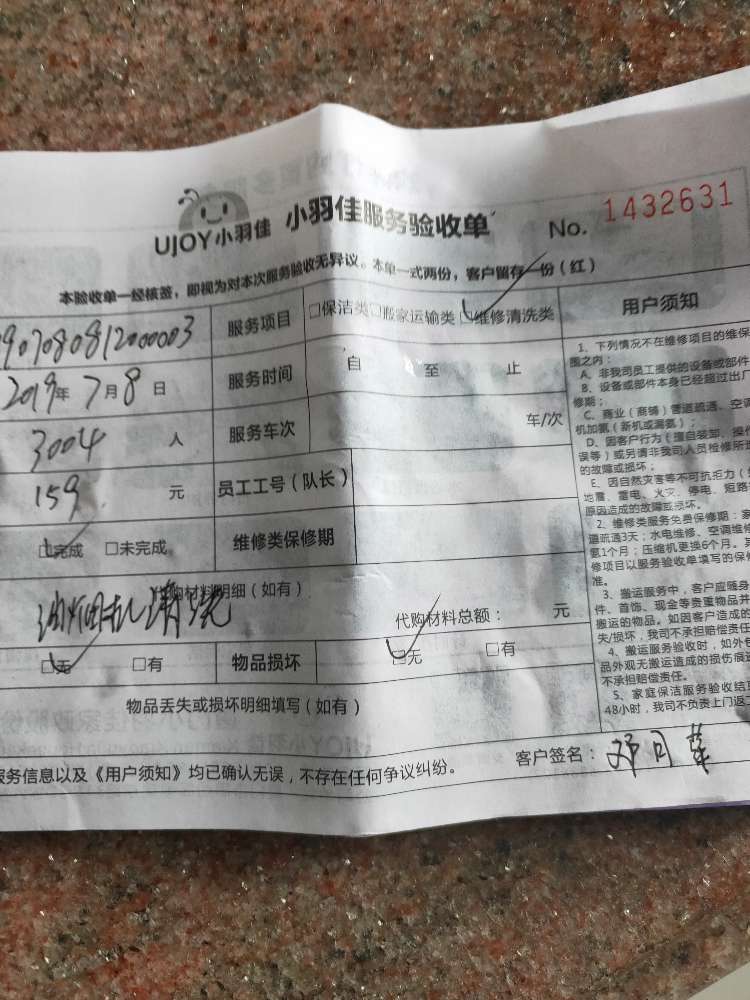 UJOY小羽佳 小羽佳服务验收单 No. 1432631
本验收单一经核签，即视为对本次服务验收无异议。本单一式两份，客户留存一份（红）
907080812000003 服务项目 □保洁类□搬家运输类□维修清洗类
2019年7月8日 服务时间 自 至 止
3004 人 服务车次 车/次
159 元 员工工号（队长）
□完成 □未完成 维修类保修期
代购材料明细（如有）
油烟机清洗
代购材料总额： 元
□无 □有 物品损坏 □无 □有
物品丢失或损坏明细填写（如有）
服务信息以及《用户须知》均已确认无误，不存在任何争议纠纷。
客户签名：
用户须知
1、下列情况不在维修项目的维保
围之内：
A、非我司员工提供的设备或部件
B、设备或部件本身已经超过出厂
修期；
C、商业（商铺）管道疏通、空调
机加氨（新机或漏氨）；
D、因客户行为（擅自装卸、操作
误等）或另请非我司人员检修所
的故障或损坏；
E、因自然灾害等不可抗拒力（
地震、雷电、火灾、停电、短路
原因造成的故障或损坏。
2、维修类服务免费保修期：家
道疏通3天；水电维修、空调维
氨1个月；压缩机更换6个月。其
修项目以服务验收单填写的保修
准。
3、搬运服务中，客户应随身
件、首饰、现金等贵重物品并
搬运的物品。如因客户造成的
失/损坏，我司不承担赔偿责任
4、搬运服务验收时，如外包
品外观无搬运造成的损伤痕迹
不承担赔偿责任。
5、家庭保洁服务验收结
48小时，我司不负责上门返工